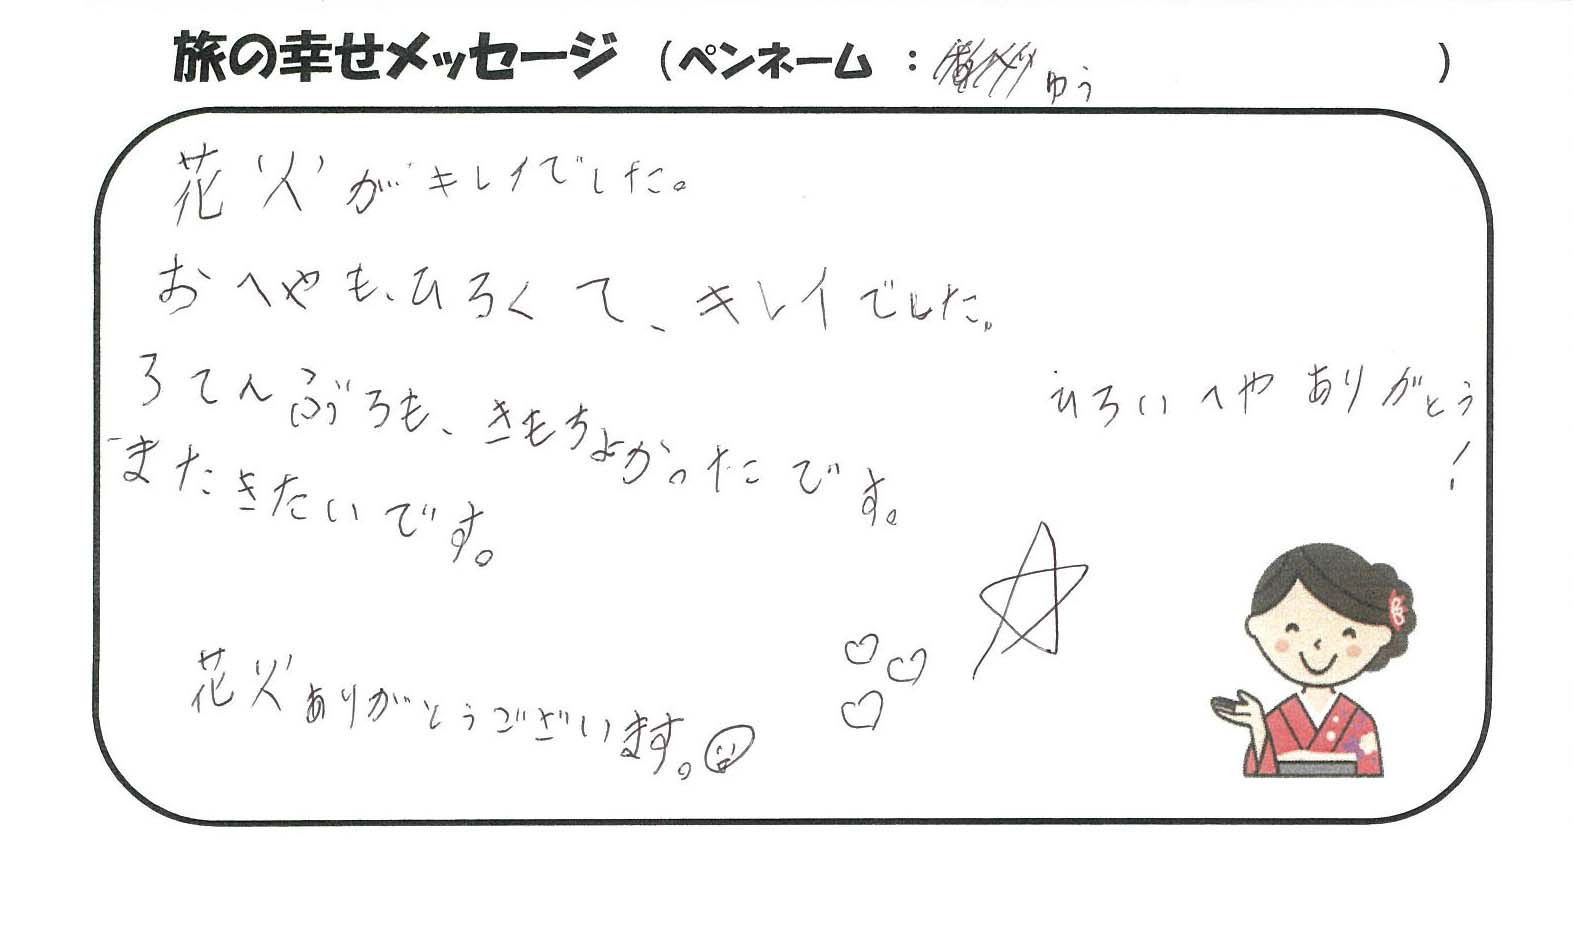 旅の幸せメッセージ (ペンネーム : ゆう )
花火がキレイでした。
おへやも、ひろくて、キレイでした。
ろてんぶろも、きもちよかったです。
ひろいへやありがとう!
またきたいです。
花火ありがとうございます。